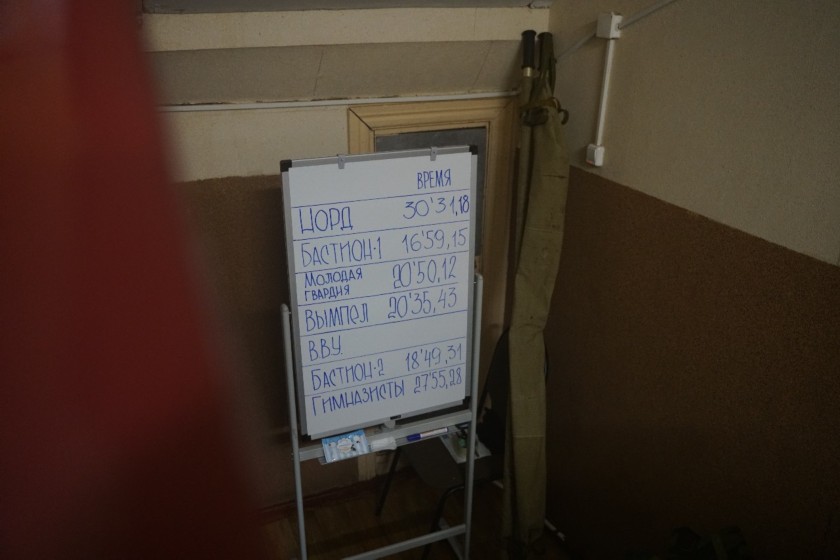 ВРЕМЯ
НОРД 30'31,18
БАСТИОН-1 16'59,15
МОЛОДАЯ
ГВАРДИЯ 20'50,12
ВЫМПЕЛ 20'35,43
В.В.У.
БАСТИОН-2 18'49,31
ГИМНАЗИСТЫ 27'55,28